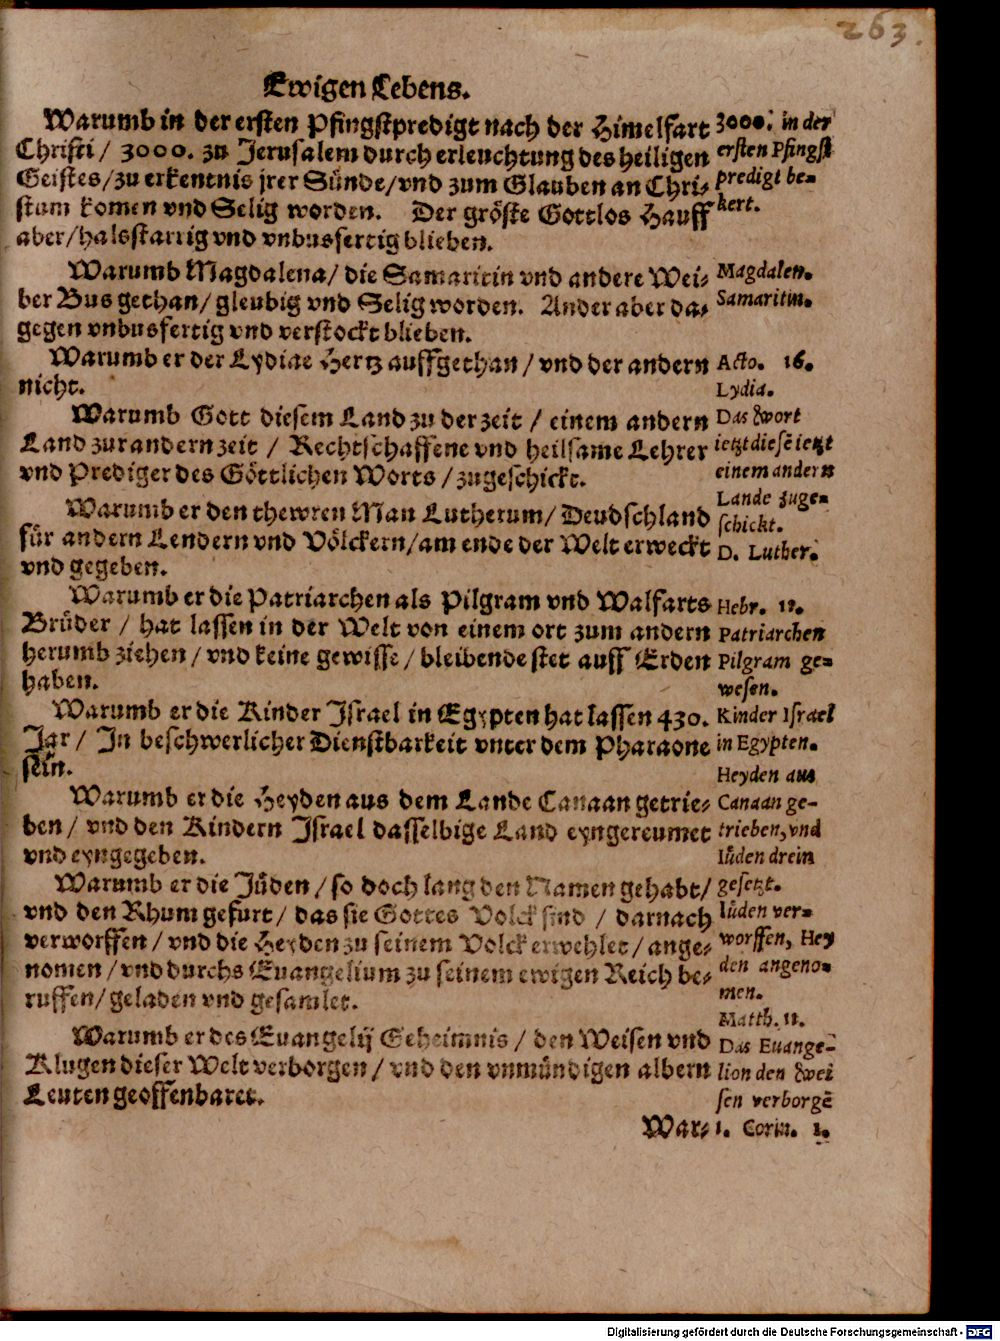 263.
Ewigen Lebens.
Warumb in der ersten Pfingstpredigt nach der Himelfart
Christi / 3000. zu Jerusalem durch erleuchtung des heiligen
Geistes / zu erkentnis jrer Sünde / vnd zum Glauben an Chri-
stum komen vnd Selig worden. Der gröste Gottlos Hauff
aber / halsstarrig vnd vnbusfertig blieben.
3000. in der
ersten Pfingst
predigt be-
kert.
Warumb Magdalena / die Samaritin vnd andere Wei-
ber Bus gethan / gleubig vnd Selig worden. Ander aber da-
gegen vnbusfertig vnd verstockt blieben.
Magdalen.
Samaritin.
Warumb er der Lydiae Hertz auffgethan / vnd der andern
nicht.
Acto. 16.
Lydia.
Warumb Gott diesem Land zu der zeit / einem andern
Land zur andern zeit / Rechtschaffene vnd heilsame Lehrer
vnd Prediger des Göttlichen Worts / zugeschickt.
Das Wort
ietzt diesē ietzt
einem andern
Lande zuge-
schickt.
Warumb er den thewren Man Lutherum / Deudschland
für andern Lendern vnd Völckern / am ende der Welt erweckt
vnd gegeben.
D. Luther.
Warumb er die Patriarchen als Pilgram vnd Walfarts
Brüder / hat lassen in der Welt von einem ort zum andern
herumb ziehen / vnd keine gewisse / bleibende stet auff Erden
haben.
Hebr. 11.
Patriarchen
Pilgram ge-
wesen.
Warumb er die Kinder Israel in Egypten hat lassen 430.
Jar / In beschwerlicher Dienstbarkeit vnter dem Pharaone
sein.
Kinder Israel
in Egypten.
Warumb er die Heyden aus dem Lande Canaan getrie-
ben / vnd den Kindern Israel dasselbige Land eyngereumet
vnd eyngegeben.
Heyden aus
Canaan ge-
trieben, vnd
Iüden drein
gesetzt.
Warumb er die Jüden / so doch lang den Namen gehabt /
vnd den Rhum gefurt / das sie Gottes Volck sind / darnach
verworffen / vnd die Heyden zu seinem Volck erwehlet / ange-
nomen / vnd durchs Euangelium zu seinem ewigen Reich be-
ruffen / geladen vnd gesamlet.
Iüden ver-
worffen, Hey
den angeno-
men.
Warumb er des Euangelij Geheimnis / den Weisen vnd
Klugen dieser Welt verborgen / vnd den vnmündigen albern
Leuten geoffenbaret.
Matth. 11.
Das Euange-
lion den Wei
sen verborgē
1. Corin. 1.
War-
Digitalisierung gefördert durch die Deutsche Forschungsgemeinschaft - DFG